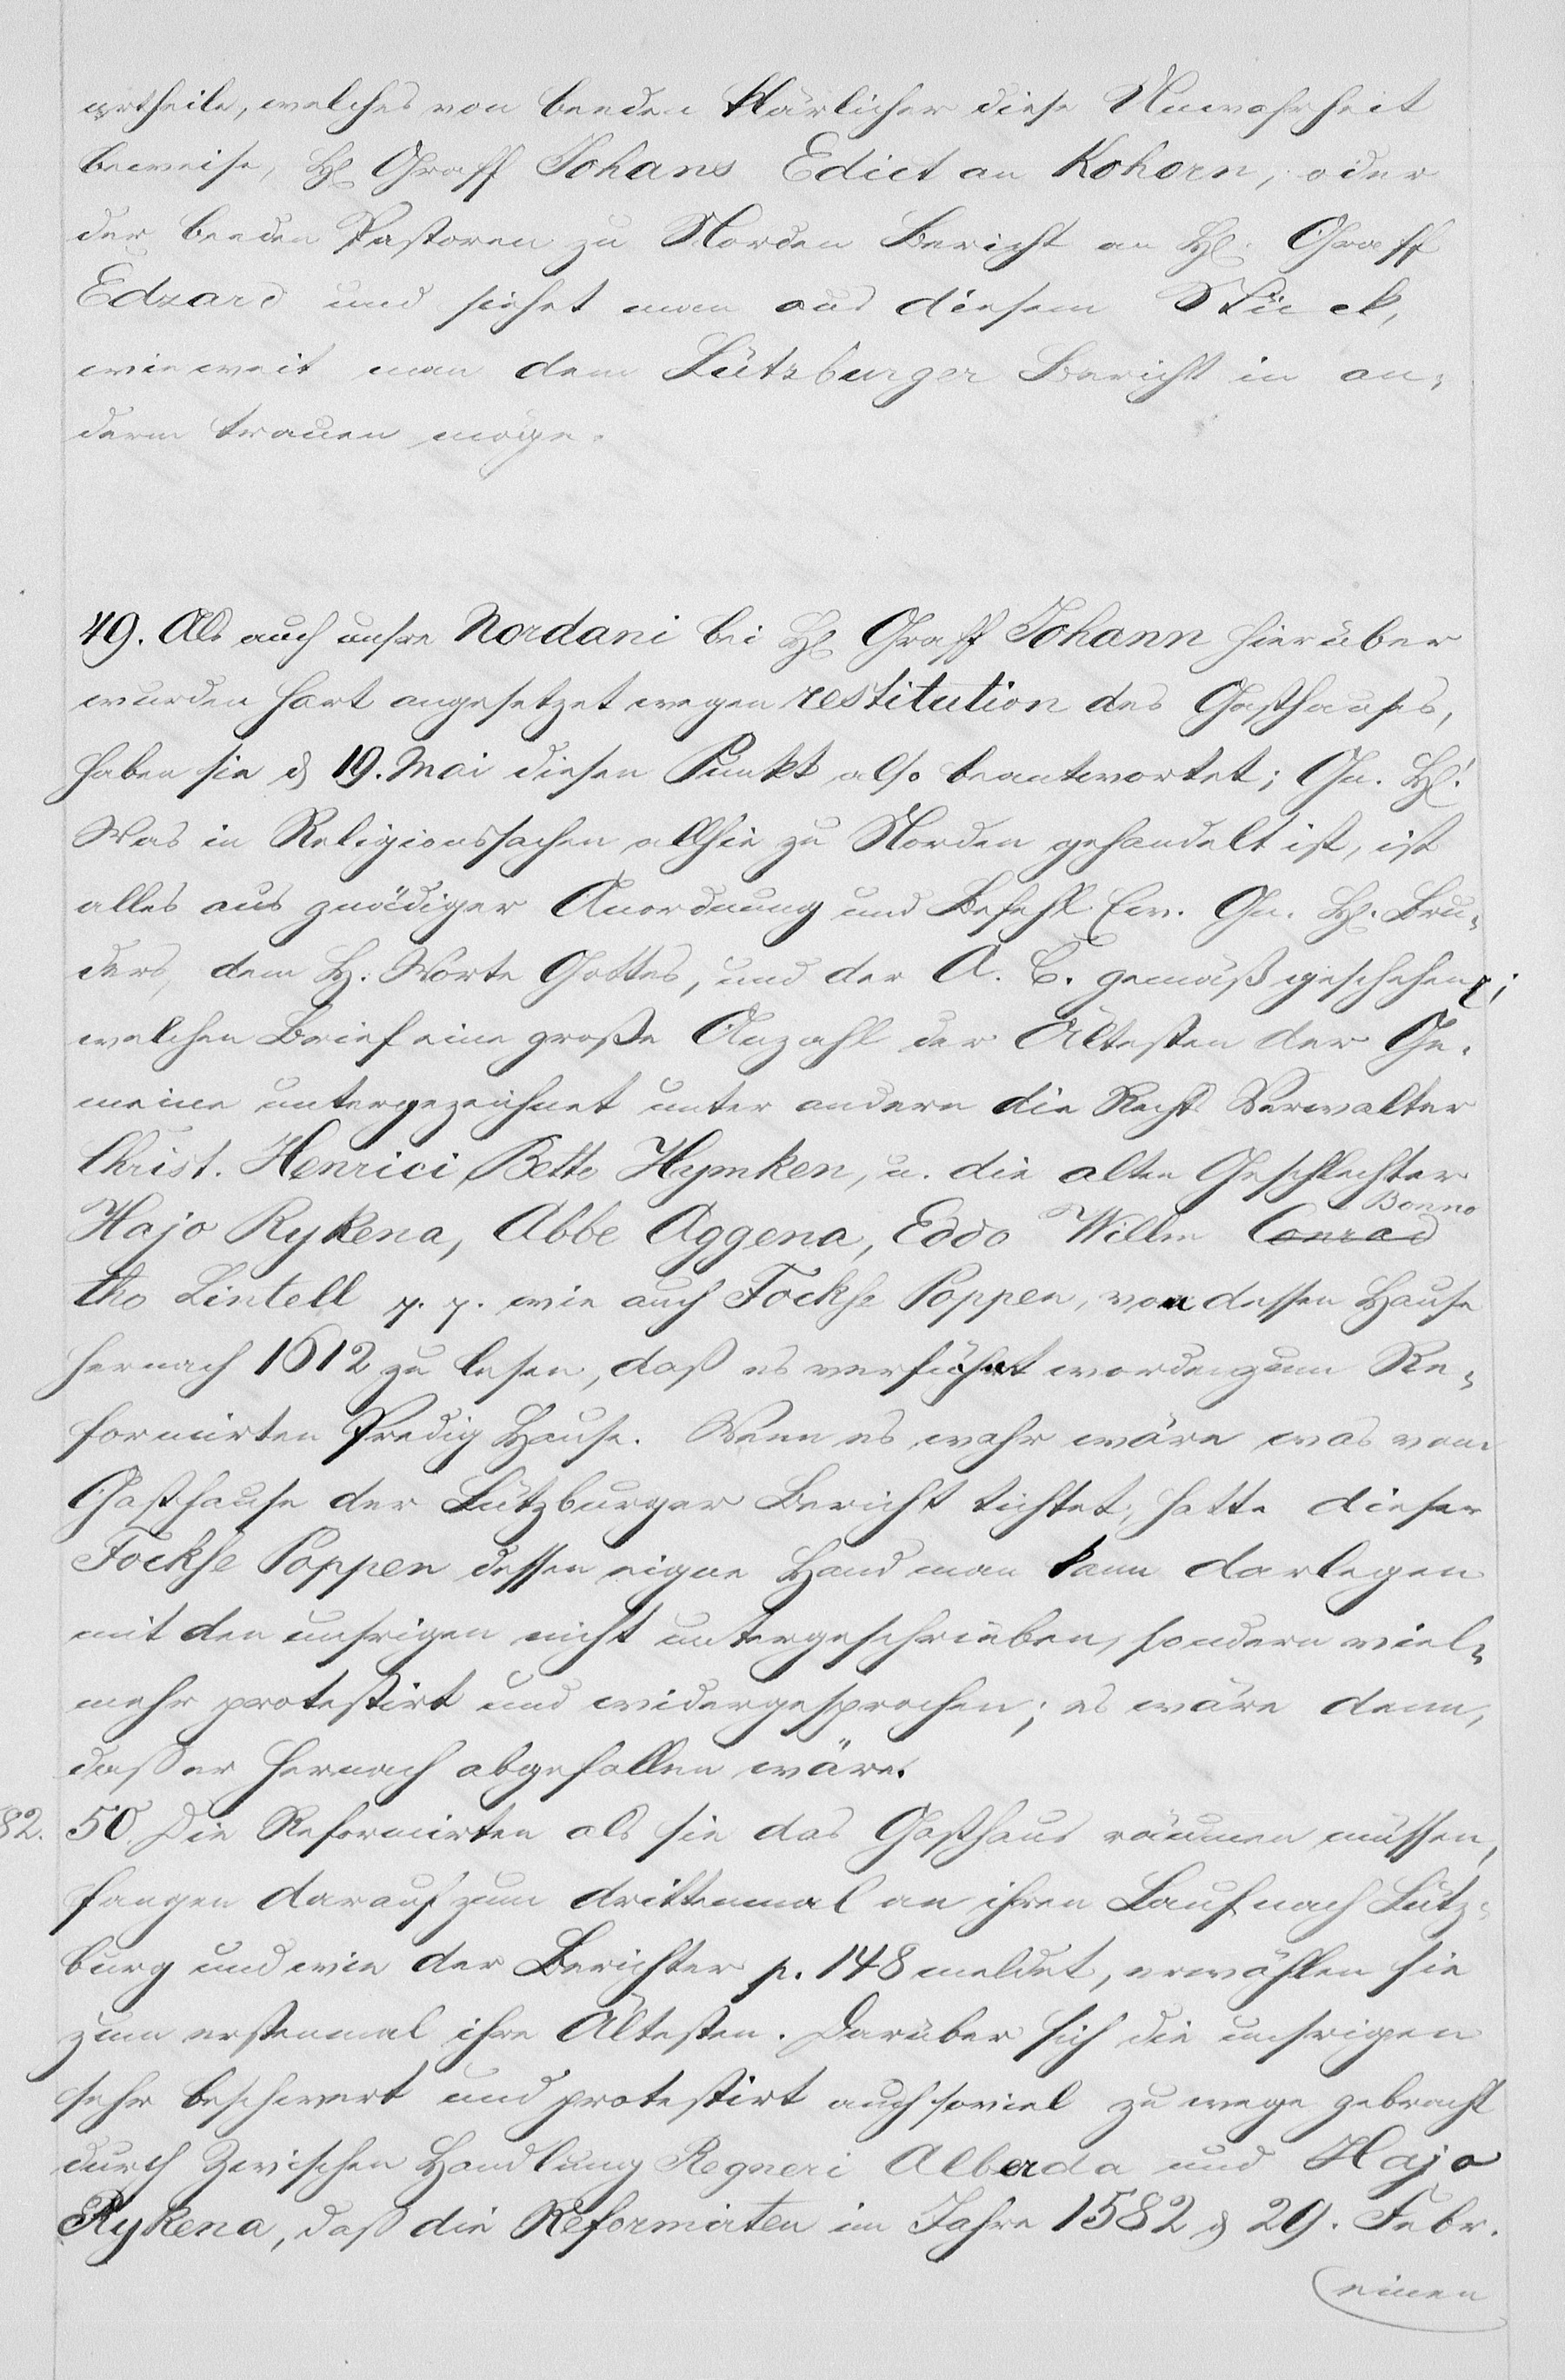 urtheile, welches von beeden klärlicher diese Unwahrheit
beweise, H. Graff Johans Edict an Kohorn, oder
der beeden Pastoren zu Norden Bericht an H. Graff
Edzard und siehet man aus diesem Stück,
wie weit man dem Lützburger Bericht in an-
derm trauen möge.
49. Als auch unsre Nordani bei H. Graff Johann hierüber
wurden hart angesetzet wegen restitution des Gasthauses,
haben sie d 19. Mai diesen Punkt also beantwortet; Gn. H!
Was in Religionssachen allhie zu Norden gehandelt ist, ist
alles aus gnädiger Anordnung und Befehl Ew. Gn. H. Bru-
ders, dem H. Worte Gottes, und der A. C. gemäß geschehen;
welchen Brief eine große Anzahl der Ältesten der Ge-
meine untergezeichnet unter andern die Rechts Verwalter
Christ. Henrici, Bette Hymken, u. die alten Geschlechter
Hajo Rykena, Abbe Aggena, Eddo Willm Conrad Bonno
tho Lintell p. p. wie auch Fockse Poppen, von dessen Hause
hernach 1612 zu lesen, daß es verführt worden zum Re-
formirten Predig Hause. Wenn es wahr wäre was vom
Gasthause der Lützburger Bericht tichtet, hatte dieser
Fockse Poppen dessen eigne Hand man kann darlegen
mit den unsrigen nicht untergeschrieben, sondern viel-
mehr protestirt und widergesprochen; es wäre denn,
daß er hernach abgefallen wäre.
82. 50. Die Reformirten als sie das Gasthaus räumen müssen,
fangen darauf zum drittenmal an ihren Lauf nach Lütz-
burg und wie der Berichter p. 148 meldet, erwählen sie
zum erstenmal ihre Ältesten. Darüber sich die unsrigen
sehr beschwert und protestirt auch soviel zu wege gebracht
durch Zwischen Handlung Regneri Alberda und Hajo
Rykena, daß die Reformirten im Jahre 1582 d 29. Febr.
einen